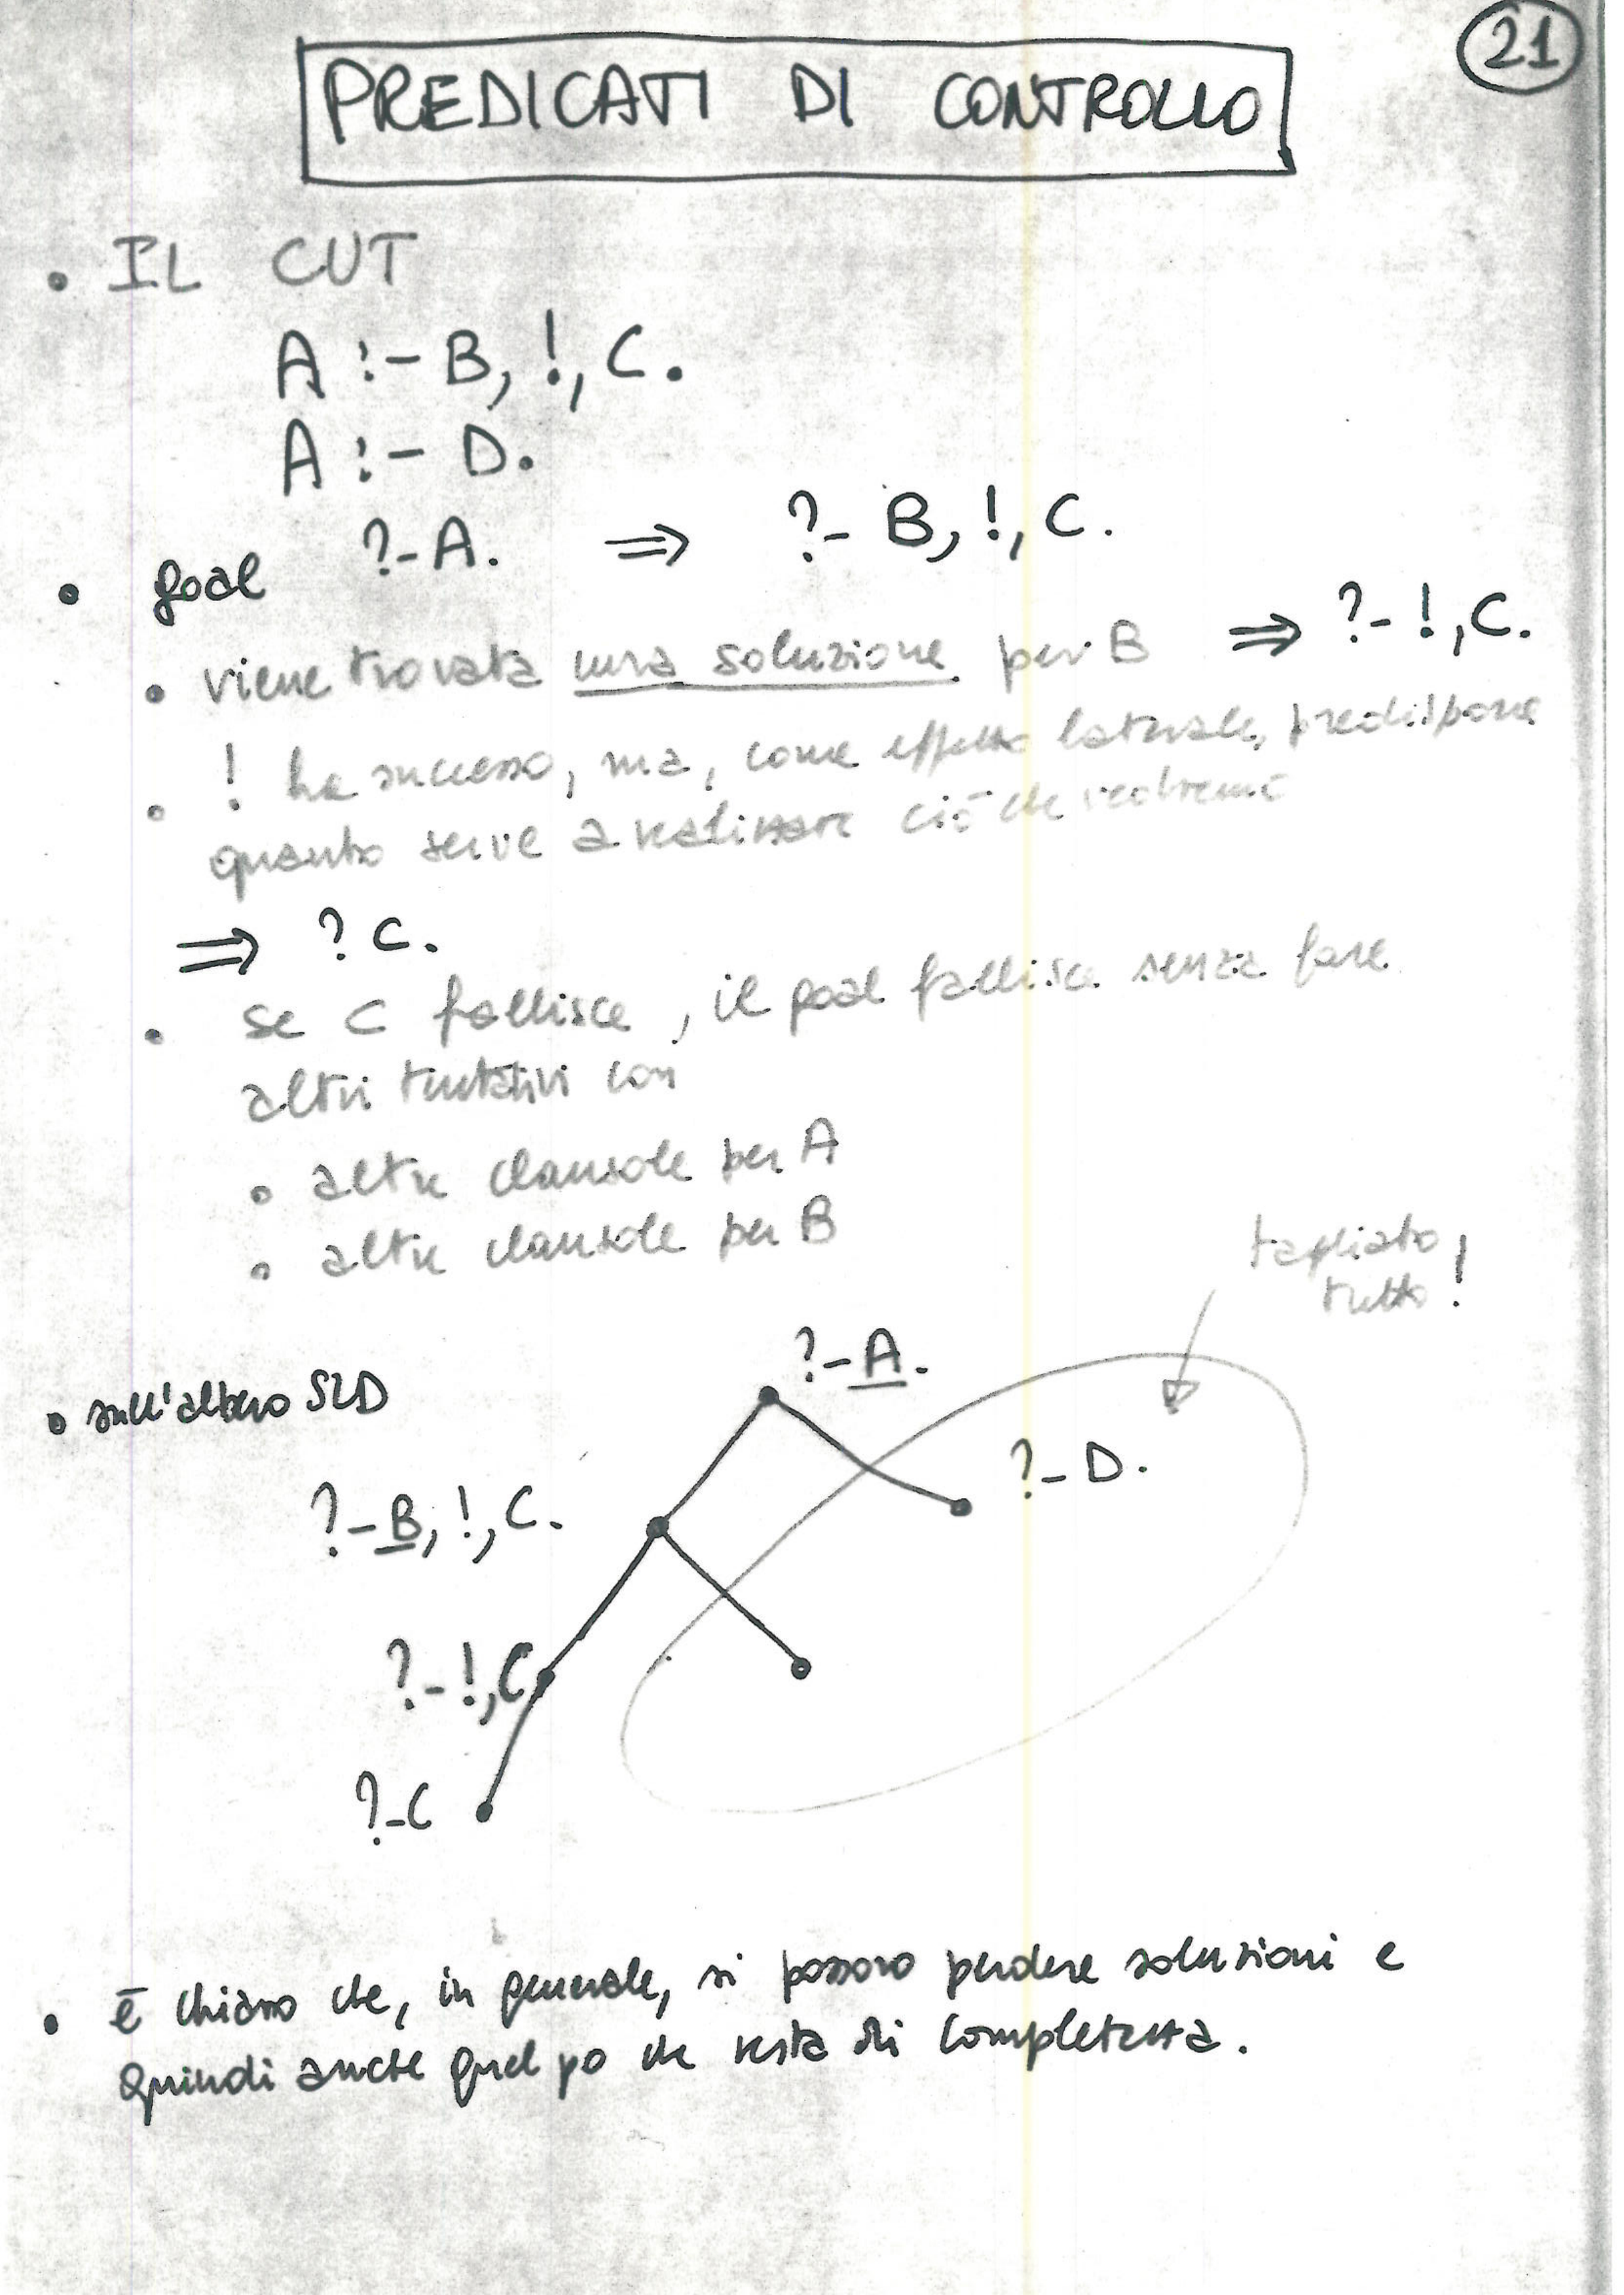 21
PREDICATI DI CONTROLLO
• IL CUT
A :- B, !, C.
A :- D.
• goal ?-A. ⇒ ?- B, !, C.
• viene trovata una soluzione per B ⇒ ?- !, C.
• ! ha successo, ma, come effetto laterale, predispone
quanto serve a realizzare ciò che vedremo
⇒ ? C.
• se C fallisce, il goal fallisce senza fare
altri tentativi con
• altre clausole per A
• altre clausole per B
tagliato
tutto!
• sull'albero SLD
?-A.
?-D.
?-B, !, C.
?-!, C
?-C
• è chiaro che, in generale, si possono perdere soluzioni e
quindi anche quel po che resta di completezza.